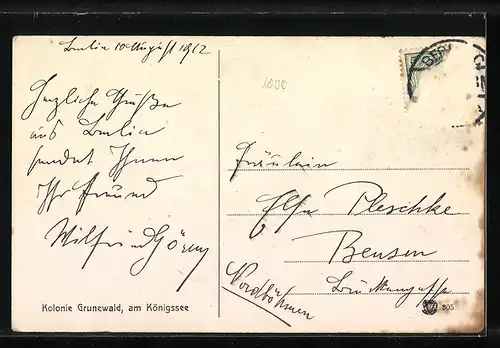 Berlin 10 August 1912
Herzliche Grüße
aus Berlin
sendet Ihnen
Ihr Freund
Wilfried
Fräulein
Elsa Pleschke
Bensen
Nordböhmen
Kolonie Grunewald, am Königssee
BER
1000